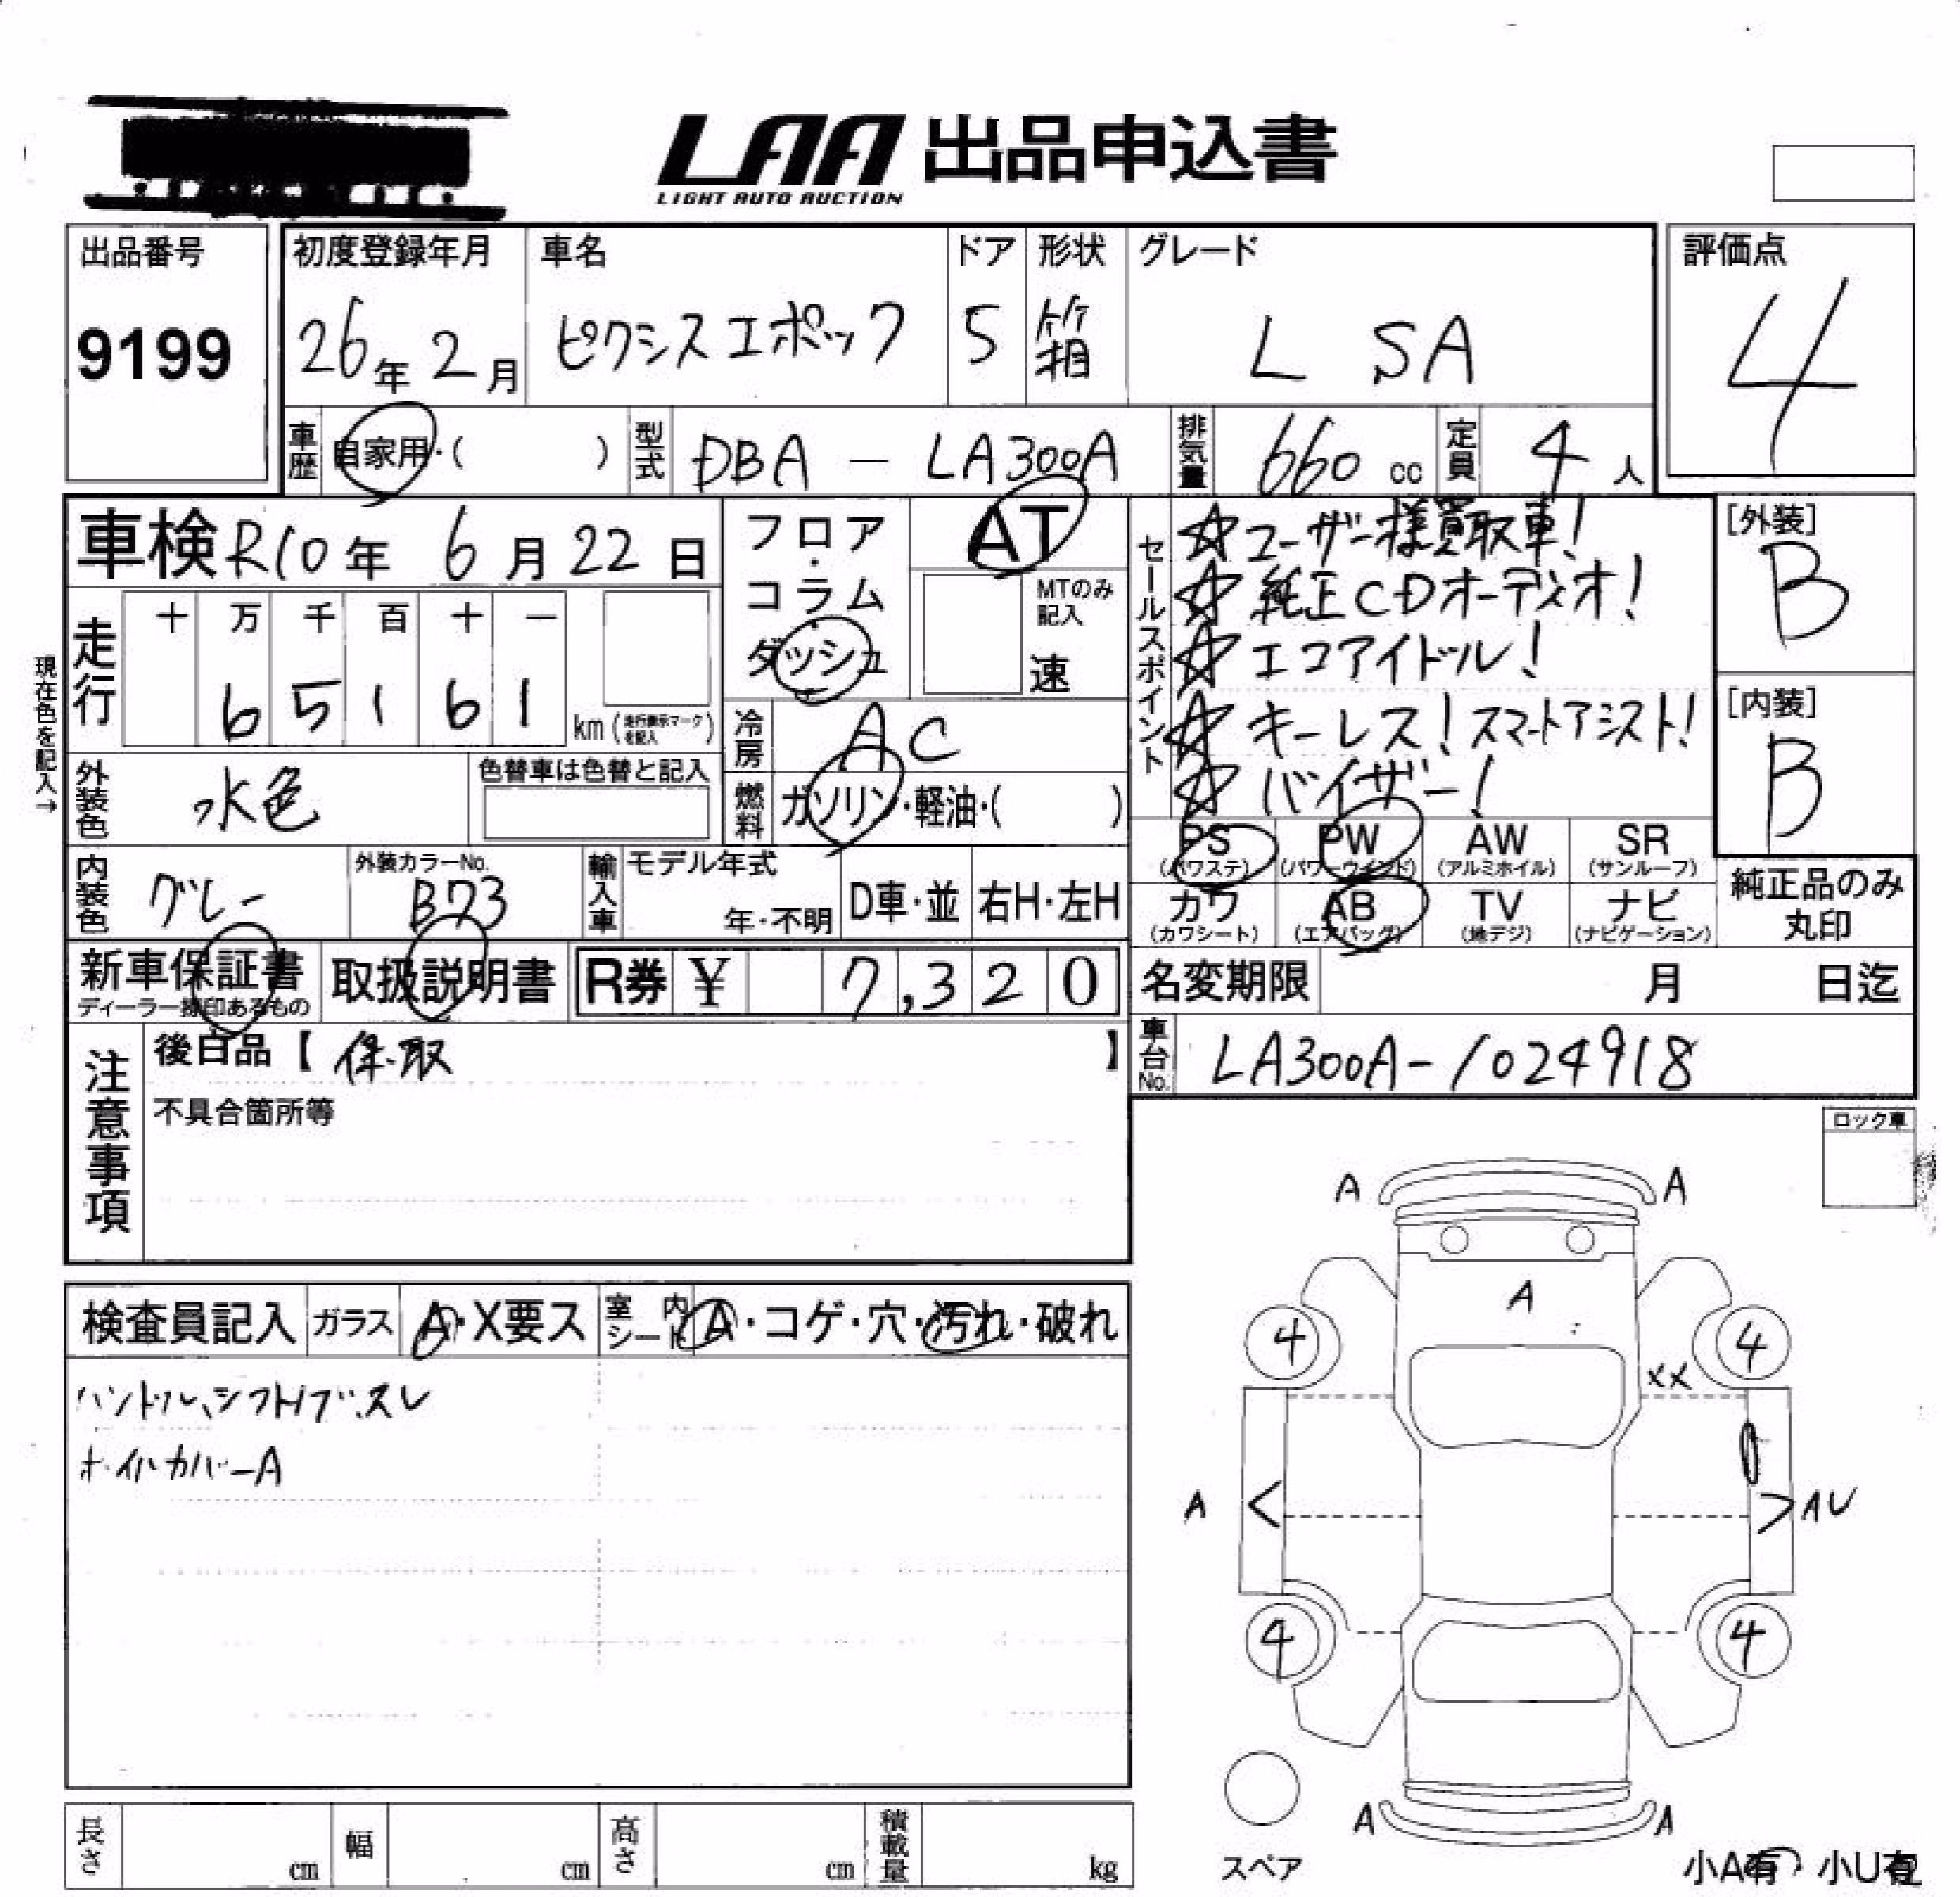 LAA 出品申込書
LIGHT AUTO AUCTION
出品番号
9199
初度登録年月
26年 2月
車名
ピクシスエポック
ドア
5
形状
箱
グレード
L SA
評価点
4
車歴
自家用・( )
型式
DBA - LA300A
排気量
660 cc
定員
4 人
車検 R10年 6月 22日
走行
十 万 千 百 十 一
6 5 1 6 1
km (走行表示マークを記入)
現在色を記入→
フロア・コラム・ダッシュ
AT
MTのみ記入
速
冷房
AC
燃料
ガソリン・軽油・( )
セールスポイント
☆ユーザー様買取車!
☆純正CDオーディオ!
☆エコアイドル!
☆キーレス!スマートアシスト!
☆バイザー!
[外装]
B
[内装]
B
外装色
水色
色替車は色替と記入
内装色
グレー
外装カラーNo.
B73
輸入車
モデル年式
年・不明
D車・並
右H・左H
PS (パワステ)
PW (パワーウインド)
AW (アルミホイル)
SR (サンルーフ)
カワ (カワシート)
AB (エアバッグ)
TV (地デジ)
ナビ (ナビゲーション)
純正品のみ丸印
新車保証書
ディーラー捺印あるもの
取扱説明書
R券 ¥ 7,320
名変期限
月 日迄
車台No.
LA300A-1024918
注意事項
後日品【 保.取 】
不具合箇所等
ロック車
検査員記入
ガラス
A・X要ス
室内シート
A・コゲ・穴・汚れ・破れ
ハンドル、シフトノブ、スレ
ホイルカバーA
A
A
A
4
4
XX
A <
> AU
4
4
A
A
スペア
小A有 小U有
長さ
cm
幅
cm
高さ
cm
積載量
kg